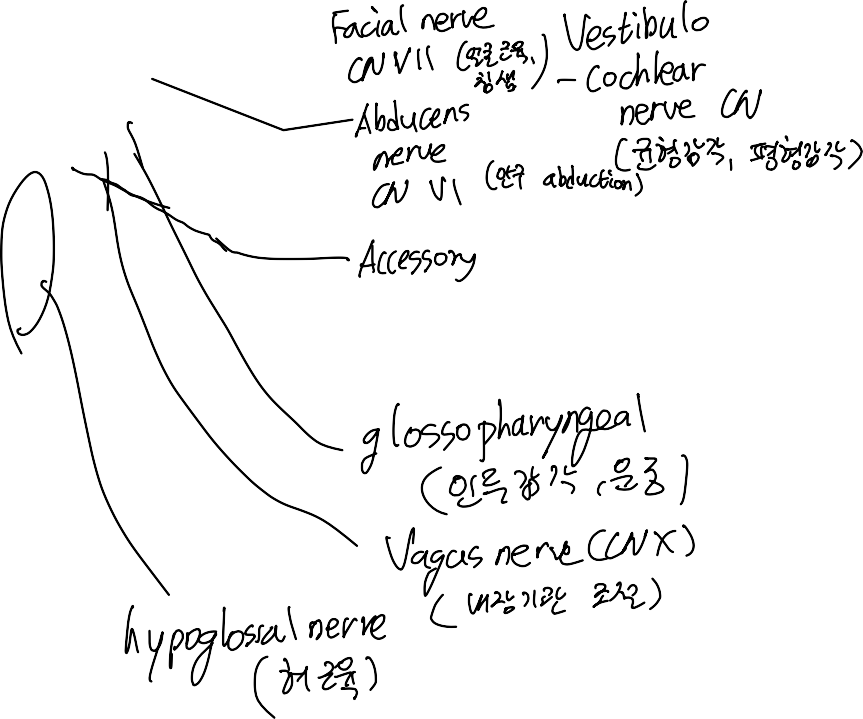 Facial nerve
CN VII (얼굴근육,
침샘)
Vestibulo
- Cochlear
nerve CN
(균형감각, 평형감각)
Abducens
nerve
CN VI (안구 abduction)
Accessory
glossopharyngeal
(인두감각, 운동)
Vagus nerve (CN X)
(내장기관 조절)
hypoglossal nerve
(혀 근육)